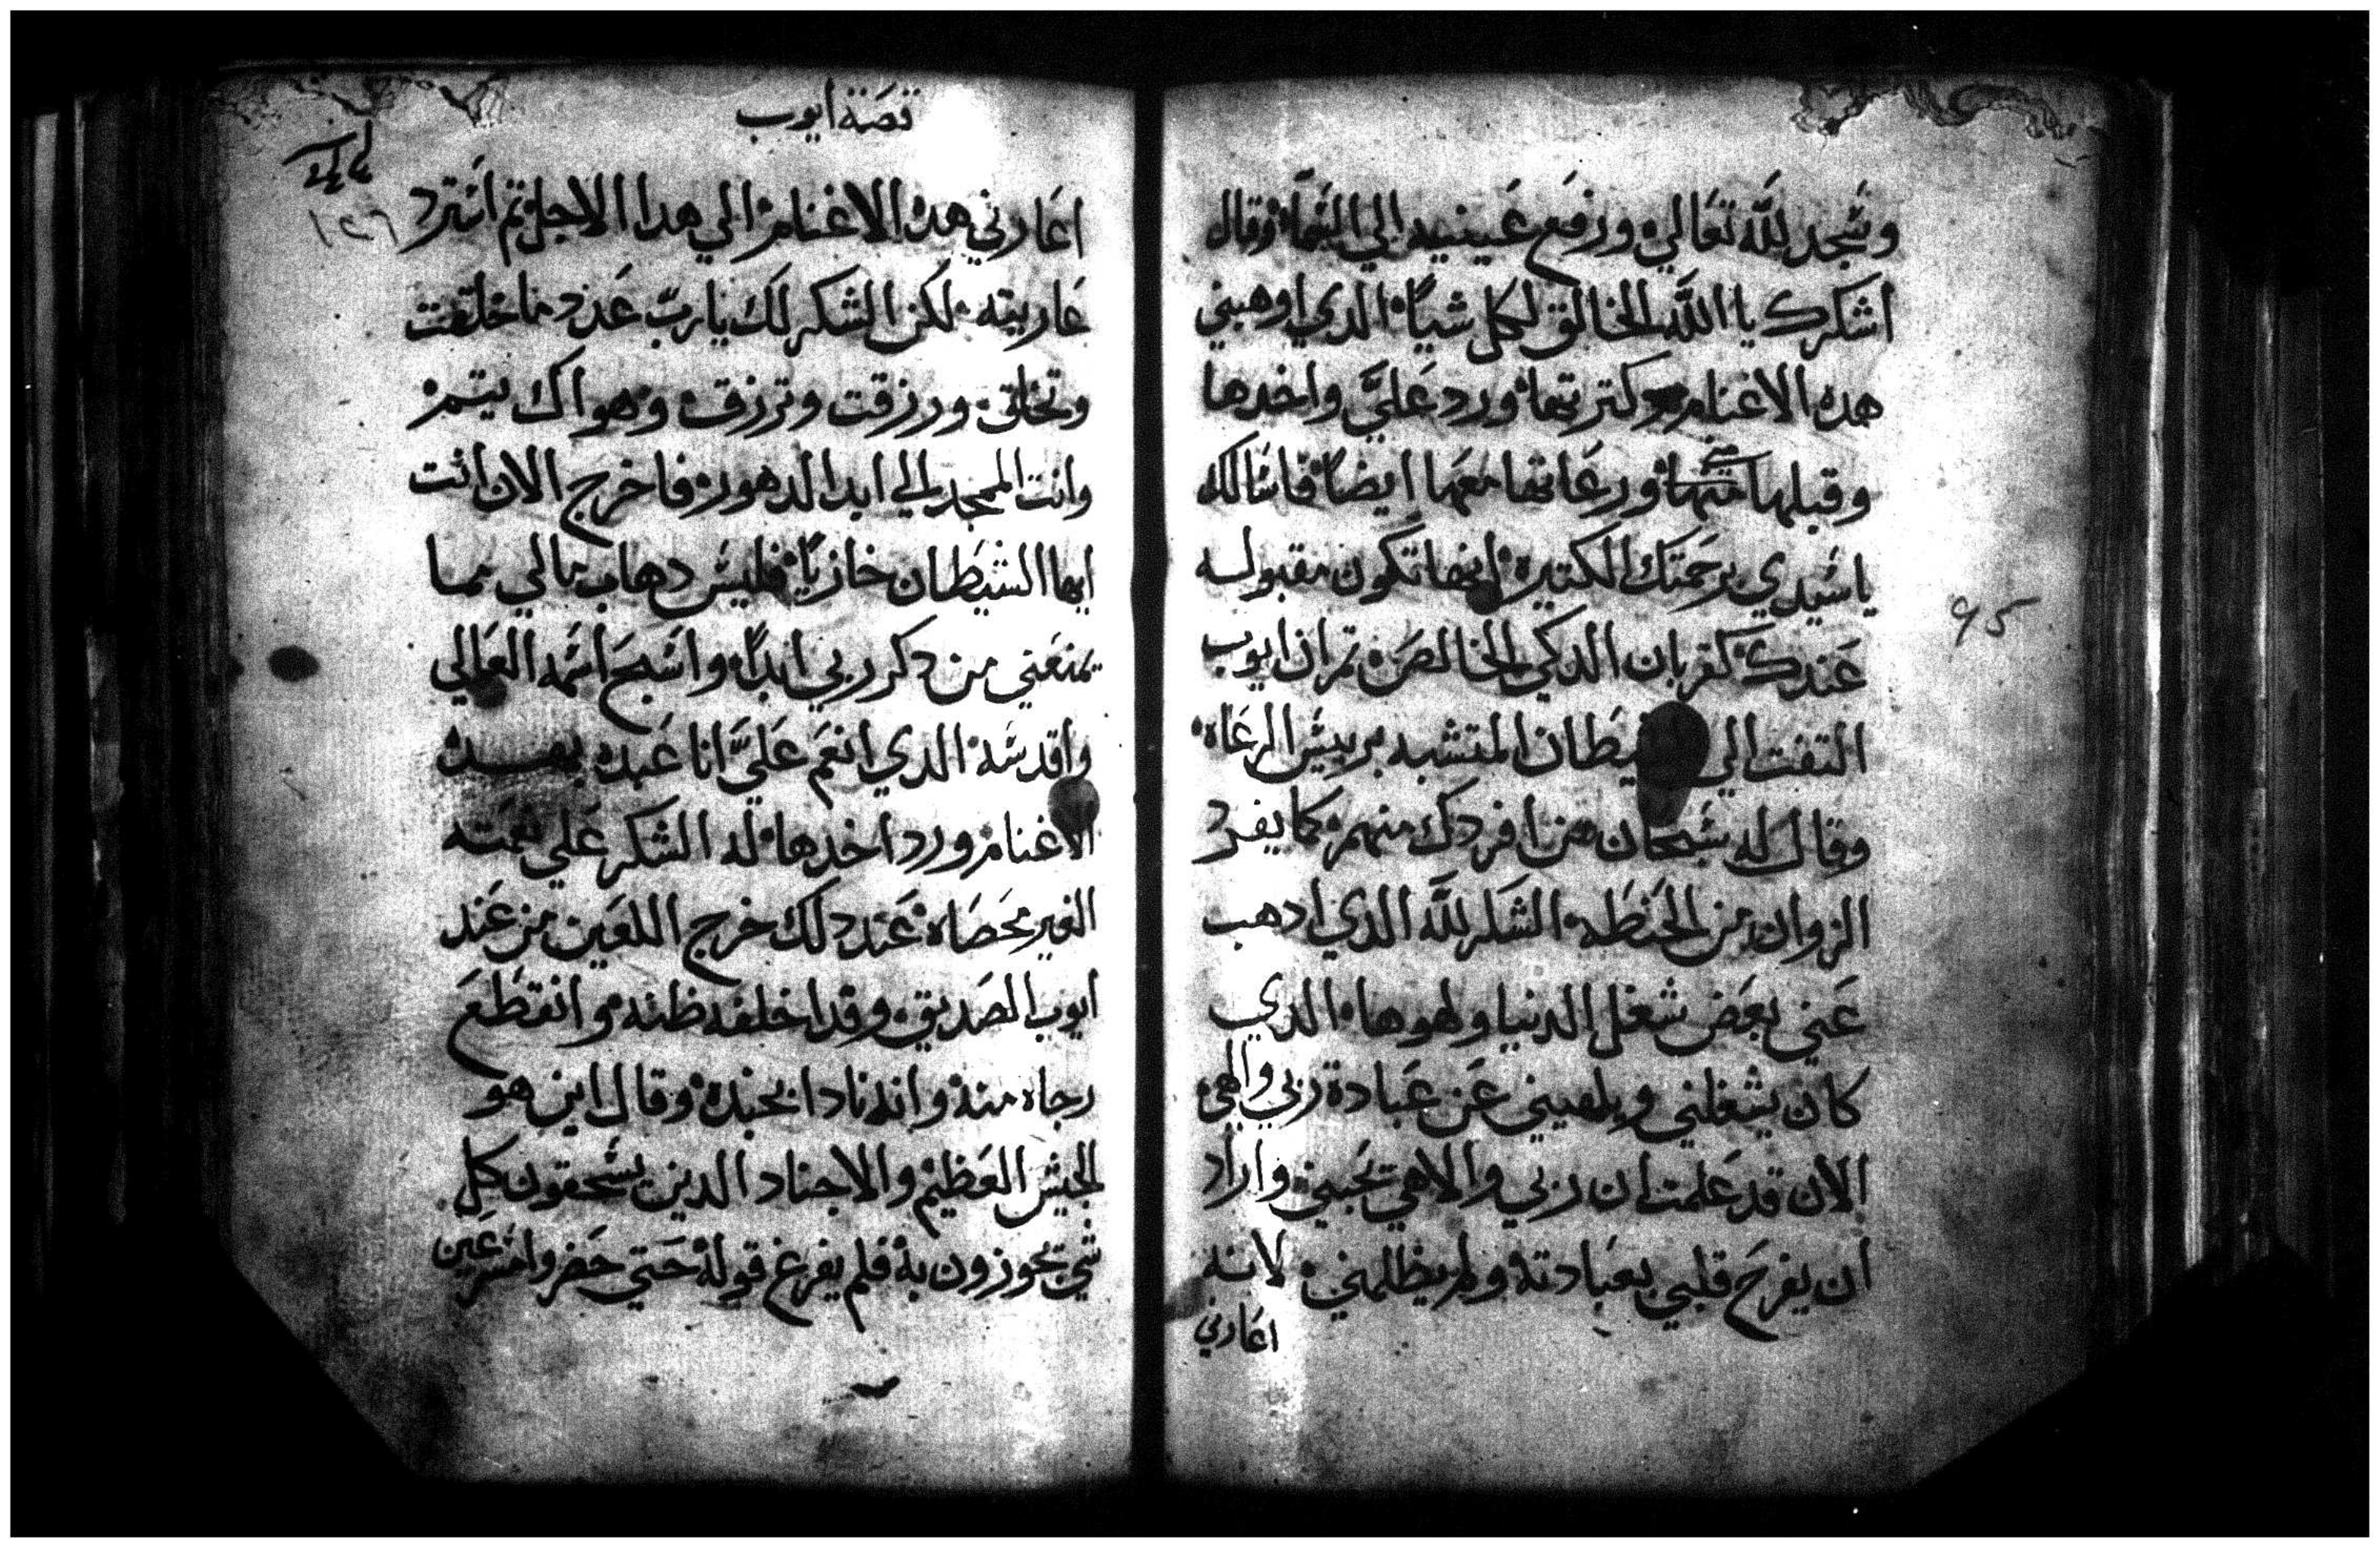 وسجد لله تعالي ورفع عينيه الي السماء وقال
اشكرك يا الله الخالق لكل شياً الدي اوهبني
هده الاغنام وكتر تها ورد علي واخدها
وقبلها مني ورعاتها معها ايضاً فاسالك
ياسيدي برحمتك الكتيره انها تكون مقبوله
عندك كقربان الدكي الخالص تم ان ايوب
التفت الي يطان المتشبه برييس الرعاه
وقال له سبحان من افردك منهم كما يفرد
الزوان من الحنطه الشكر لله الدي ادهب
عني بعض شغل الدنيا ولهوها الدي
كان يشغلني ويلهيني عن عبادة ربي والهي
الان قد علمت ان ربي والاهي يحبني واراد
ان يفرح قلبي بعبادته ولم يظلمني لانه
اعارني
95
قصة ايوب
١٢٦
اعارني هده الاغنام الي هدا الاجل تم استرد
عاريته لكن الشكر لك يا رب عدد ما خلقت
وتخلق ورزقت وترزق وهو اك يتم
وانت الممجد الي ابد الدهور فاخرج الان انت
ايها الشيطان خازياً فليس دهاب مالي مما
يمنعني من دكر ربي ابداً واسبح اسمه العالي
واقدسه الدي انعم علي انا عبده بهده
الاغنام ورد اخدها له الشكر علي نعمته
الغير محصاه عند دلك خرج اللعين من عند
ايوب الصديق وقد اخلفه ظنه وانقطع
رجاه منه وانه نادا بجنده وقال اين هو
الجيش العظيم والاجناد الدين يسحقون كل
شي يجوزون به فلم يفرغ قوله حتي حضروا مسرعين